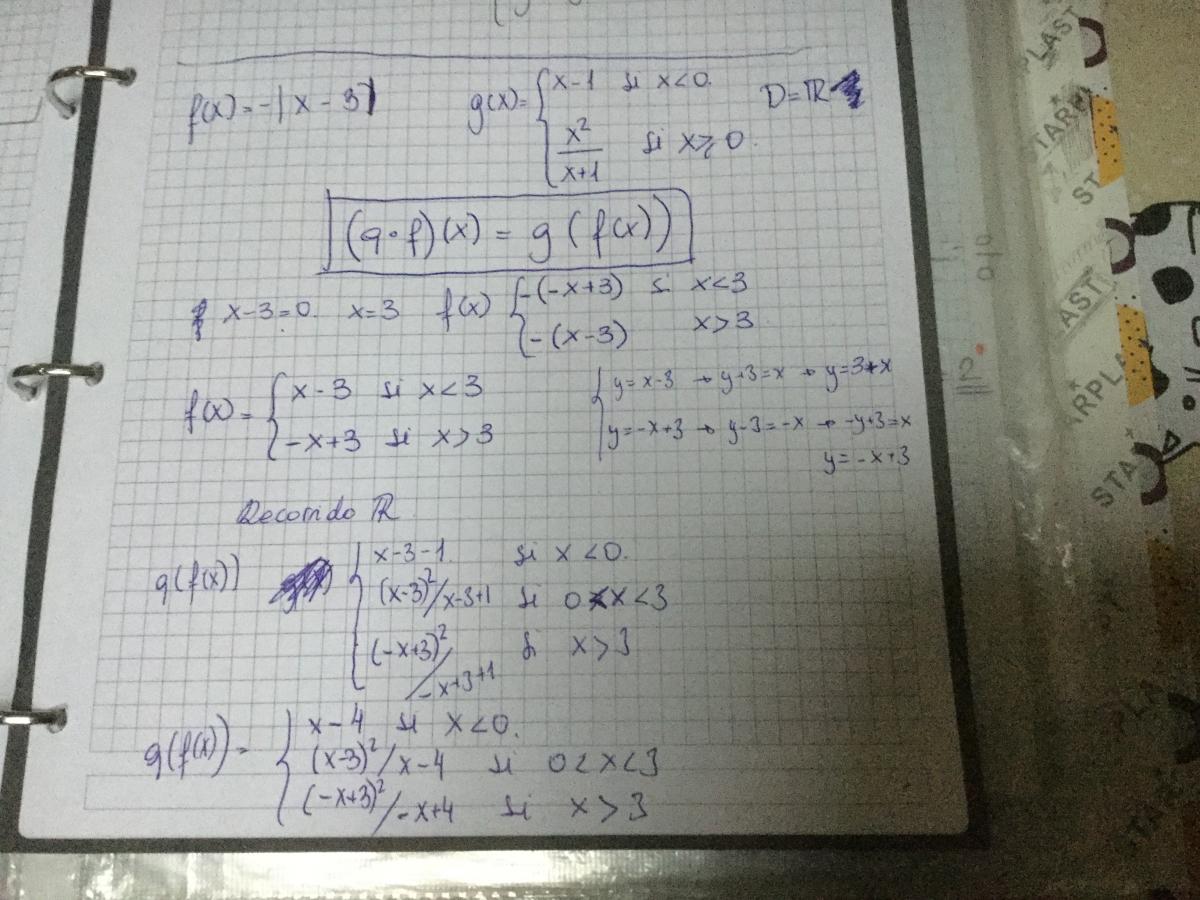 f(x) = -|x-3|   g(x) = { x-1 si x<0.   D=ℝ
x²/x+1 si x≥0.
(g∘f)(x) = g(f(x))
x-3=0. x=3 f(x) { -(-x+3) si x<3
-(x-3) x>3
f(x) = { x-3 si x<3   { y=x-3 → y+3=x → y=3+x
-x+3 si x>3   y=-x+3 → y-3=-x → -y+3=x
y=-x+3
Recorrido ℝ
g(f(x)) { x-3-1. si x<0.
(x-3)²/x-3+1 si 0<x<3
(-x+3)²/-x+3+1 si x>3
g(f(x)) = { x-4 si x<0.
(x-3)²/x-4 si 0<x<3
(-x+3)²/-x+4 si x>3
2
LAST
STARPLAST
STARPLAST
STAR